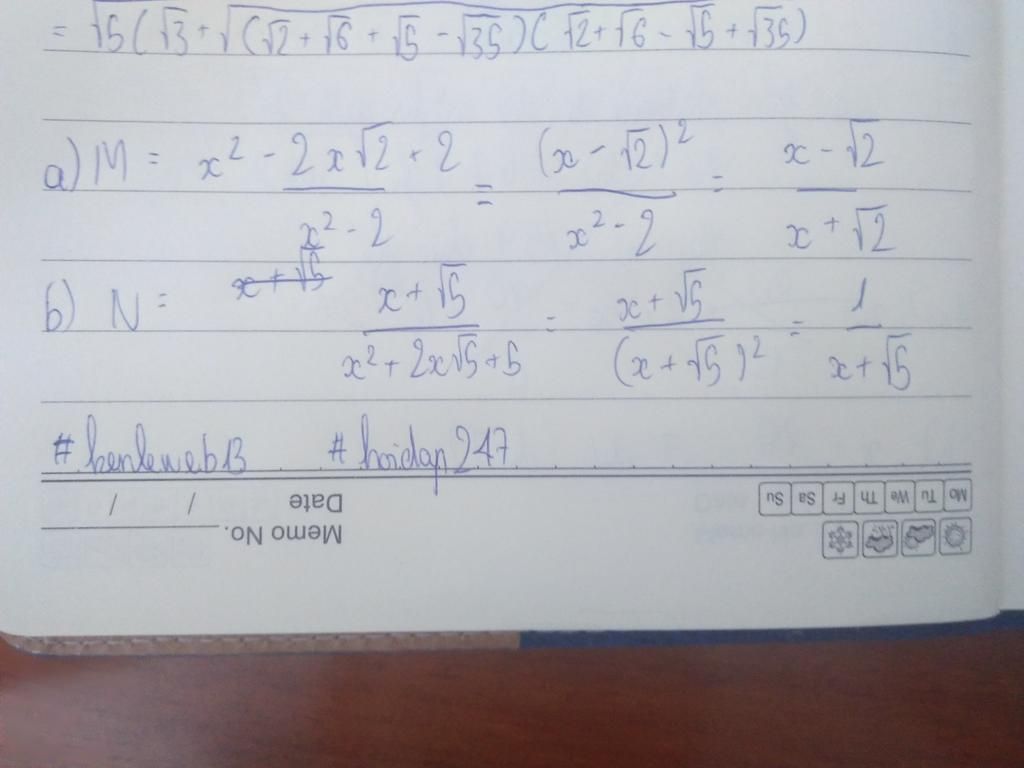 = √5(√3 + √(√2 + √6 + √5 - √35)(√2 + √6 - √5 + √35)
a) M = (x² - 2x√2 + 2)/(x² - 2) = (x - √2)²/(x² - 2) = (x - √2)/(x + √2)
b) N = x + √5 (x + √5)/(x² + 2x√5 + 5) = (x + √5)/(x + √5)² = 1/(x + √5)
#kenleweb13 #hoidap247
Date / / Mo Tu We Th Fr Sa Su
Memo No.